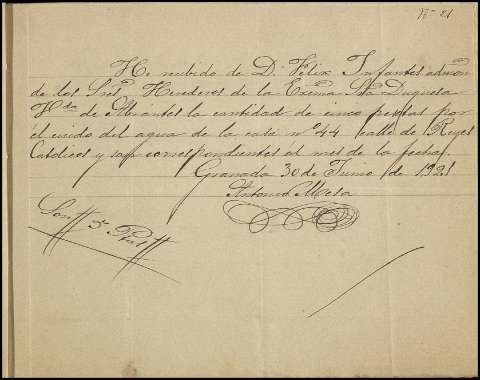 Nº 21
He recibido de D. Félix Infantes admon
de los Sres Herederos de la Exema Sra Duquesa
Vda de Abrantes la cantidad de cinco pesetas por
el cuido del agua de la casa nº 44 calle de Reyes
Católicos y son correspondientes al mes de la fecha
Granada 30 de Junio de 1921
Antonio Mesa
Son 5 Ptas